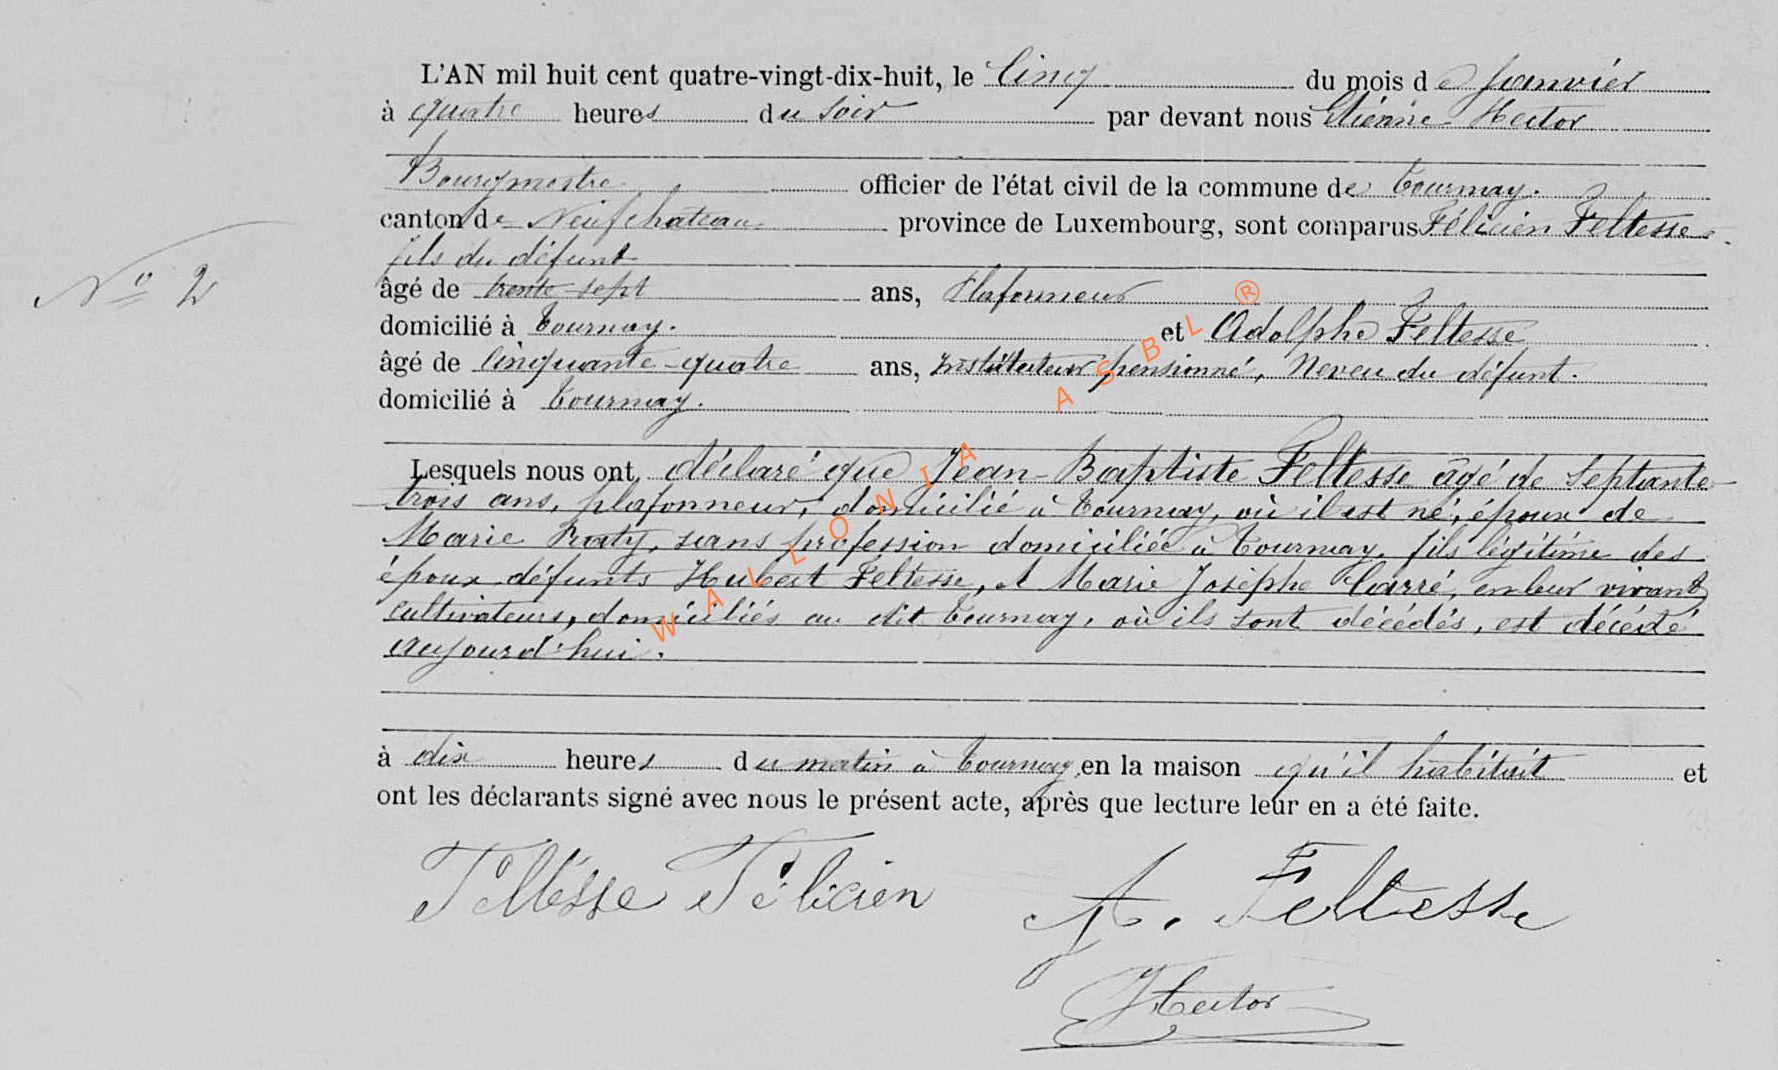 L'AN mil huit cent quatre-vingt-dix-huit, le Cinq du mois de Janvier
à quatre heures du soir par devant nous Etienne Hector
Bourgmestre officier de l'état civil de la commune de Tournay.
canton de Neufchateau province de Luxembourg, sont comparus Félicien Feltesse
fils du défunt
N° 2
âgé de trente-sept ans, Plafonneur
domicilié à Tournay. et Adolphe Feltesse
âgé de cinquante-quatre ans, Instituteur pensionné, Neveu du défunt.
domicilié à Tournay.
Lesquels nous ont déclaré que Jean-Baptiste Feltesse âgé de Septante
trois ans, plafonneur, domicilié à Tournay, où il est né, époux de
Marie Praty, sans profession domiciliée à Tournay, fils légitime des
époux défunts Hubert Feltesse, et Marie Josèphe Carré, en leur vivant
cultivateurs, domiciliés au dit Tournay, où ils sont décédés, est décédé
aujourd'hui.
à dix heures du matin à Tournay, en la maison qu'il habitait et
ont les déclarants signé avec nous le présent acte, après que lecture leur en a été faite.
Feltesse Félicien A. Feltesse
Hector
WALLONIA ASBL ®